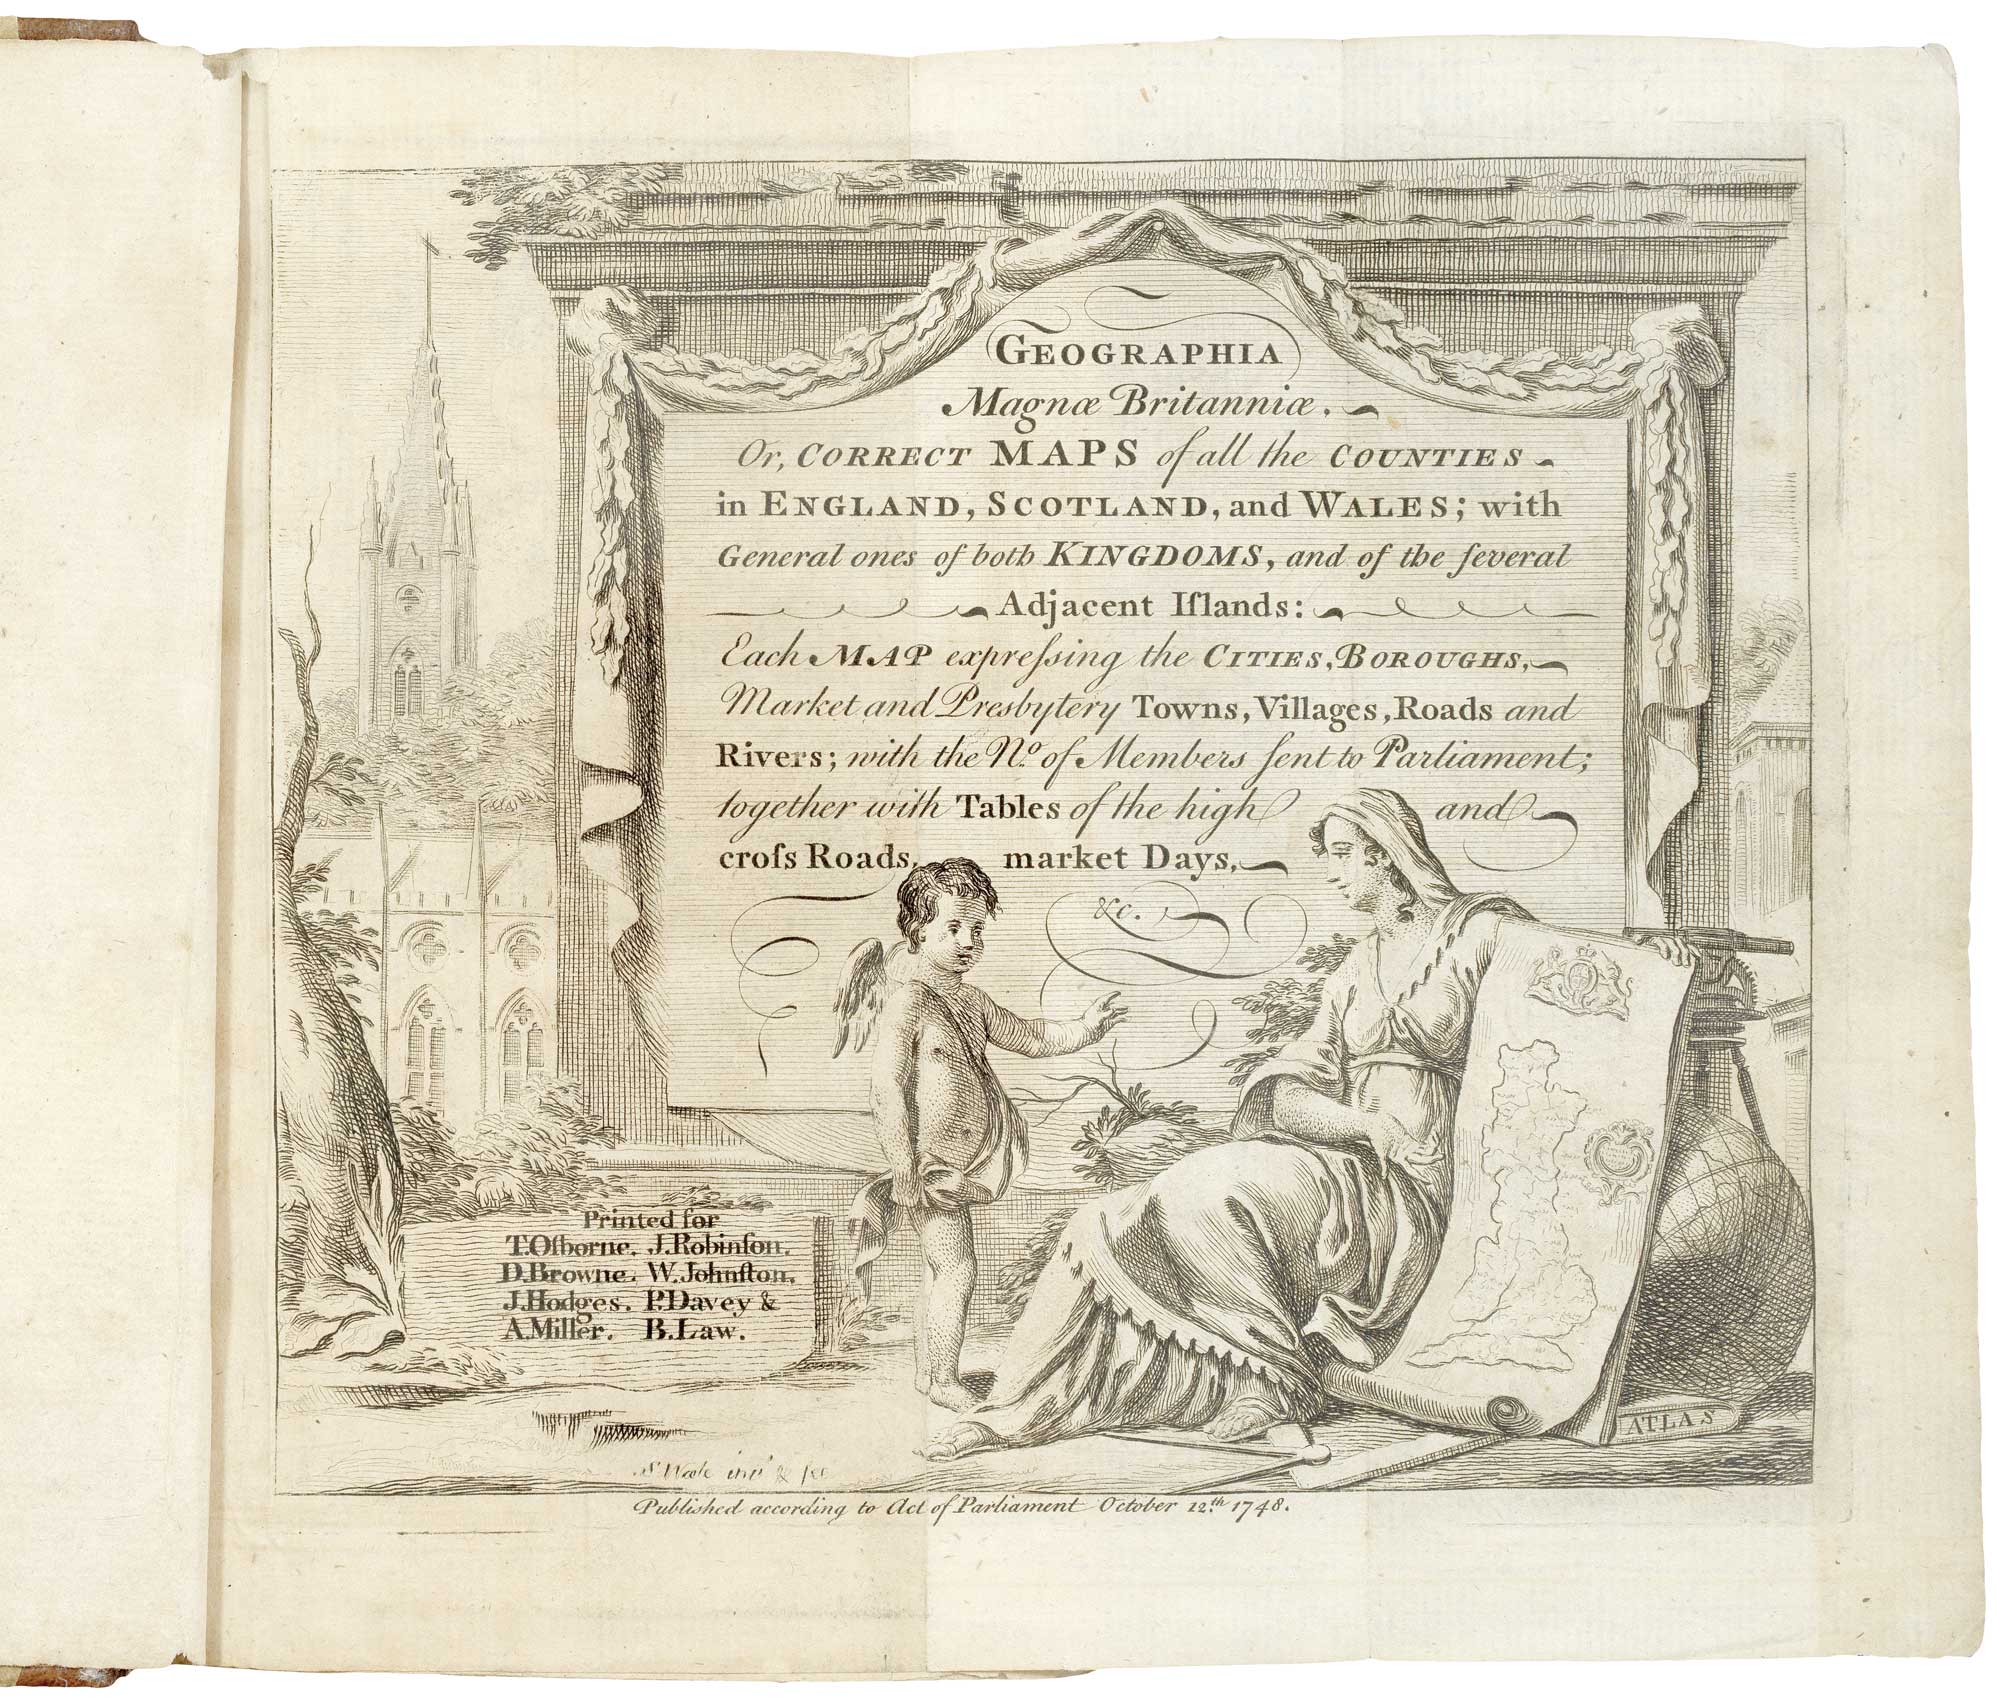 GEOGRAPHIA
Magnæ Britanniæ.
Or, CORRECT MAPS of all the COUNTIES
in ENGLAND, SCOTLAND, and WALES; with
General ones of both KINGDOMS, and of the ſeveral
Adjacent Iſlands:
Each MAP expreſsing the CITIES, BOROUGHS,
Market and Presbytery Towns, Villages, Roads and
Rivers; with the No. of Members ſent to Parliament;
together with Tables of the high and
croſs Roads, market Days,
&c.
Printed for
T. Oſborne. J. Robinſon.
D. Browne. W. Johnſton.
J. Hodges. P. Davey &
A. Miller. B. Law.
ATLAS
Published according to Act of Parliament October 12.th 1748.